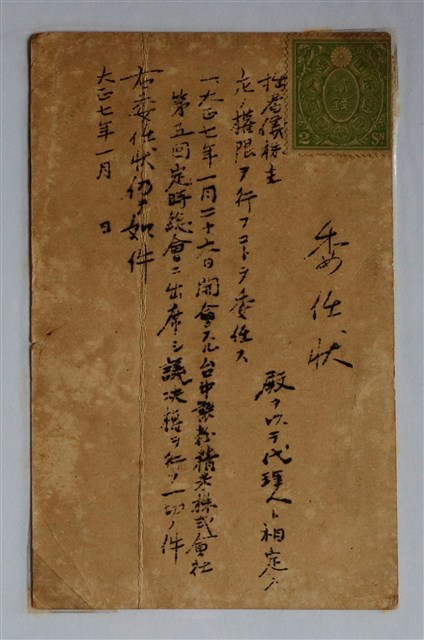 2 SN
委任状
拙者儀株主 殿ヲ以テ代理人ト相定メ
左ノ権限ヲ行フコトヲ委任ス
一、大正七年一月二十六日開會スル台中製粉精米株式會社
第五回定時総會ニ出席シ議決権ヲ行フ一切ノ件
右委任状仍テ如件
大正七年一月 日